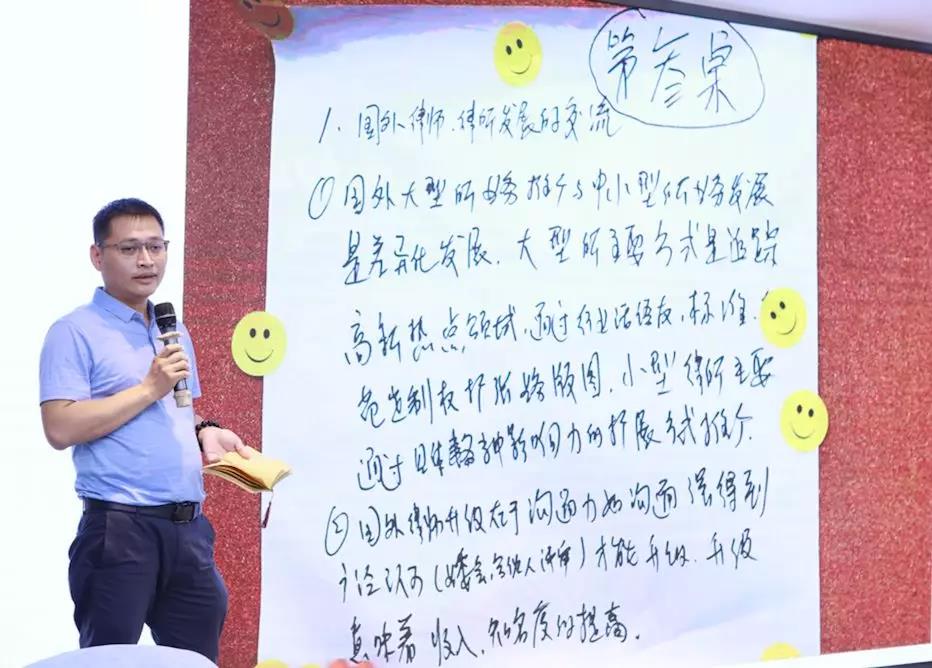 第叁桌
1、国外律师、律所发展的交流
①国外大型所业务推介与中小型所业务发展
是差异化发展，大型所主要方式是追踪
高新热点领域，通过行业话语权，标准、
制权扩张版图，小型律所主要
通过自身影响力的扩展方式推介.
②国外律师升级在于沟通力如沟通 得到
广泛认可（如委会、合伙人评审）才能升级. 升级
意味着收入、知名度的提高.